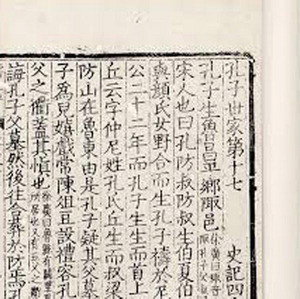 孔子世家第十七 史記四
孔子生魯昌平鄉陬邑
宋人也曰孔防叔防叔生伯夏伯
與顏氏女野合而生孔子禱於尼
公二十二年而孔子生生而首上
丘云字仲尼姓孔氏丘生而叔梁
防山在魯東由是孔子疑其父墓
子為兒嬉戲常陳俎豆設禮容孔
父之衢蓋其慎也
誨孔子父墓然後往合葬於防焉孔